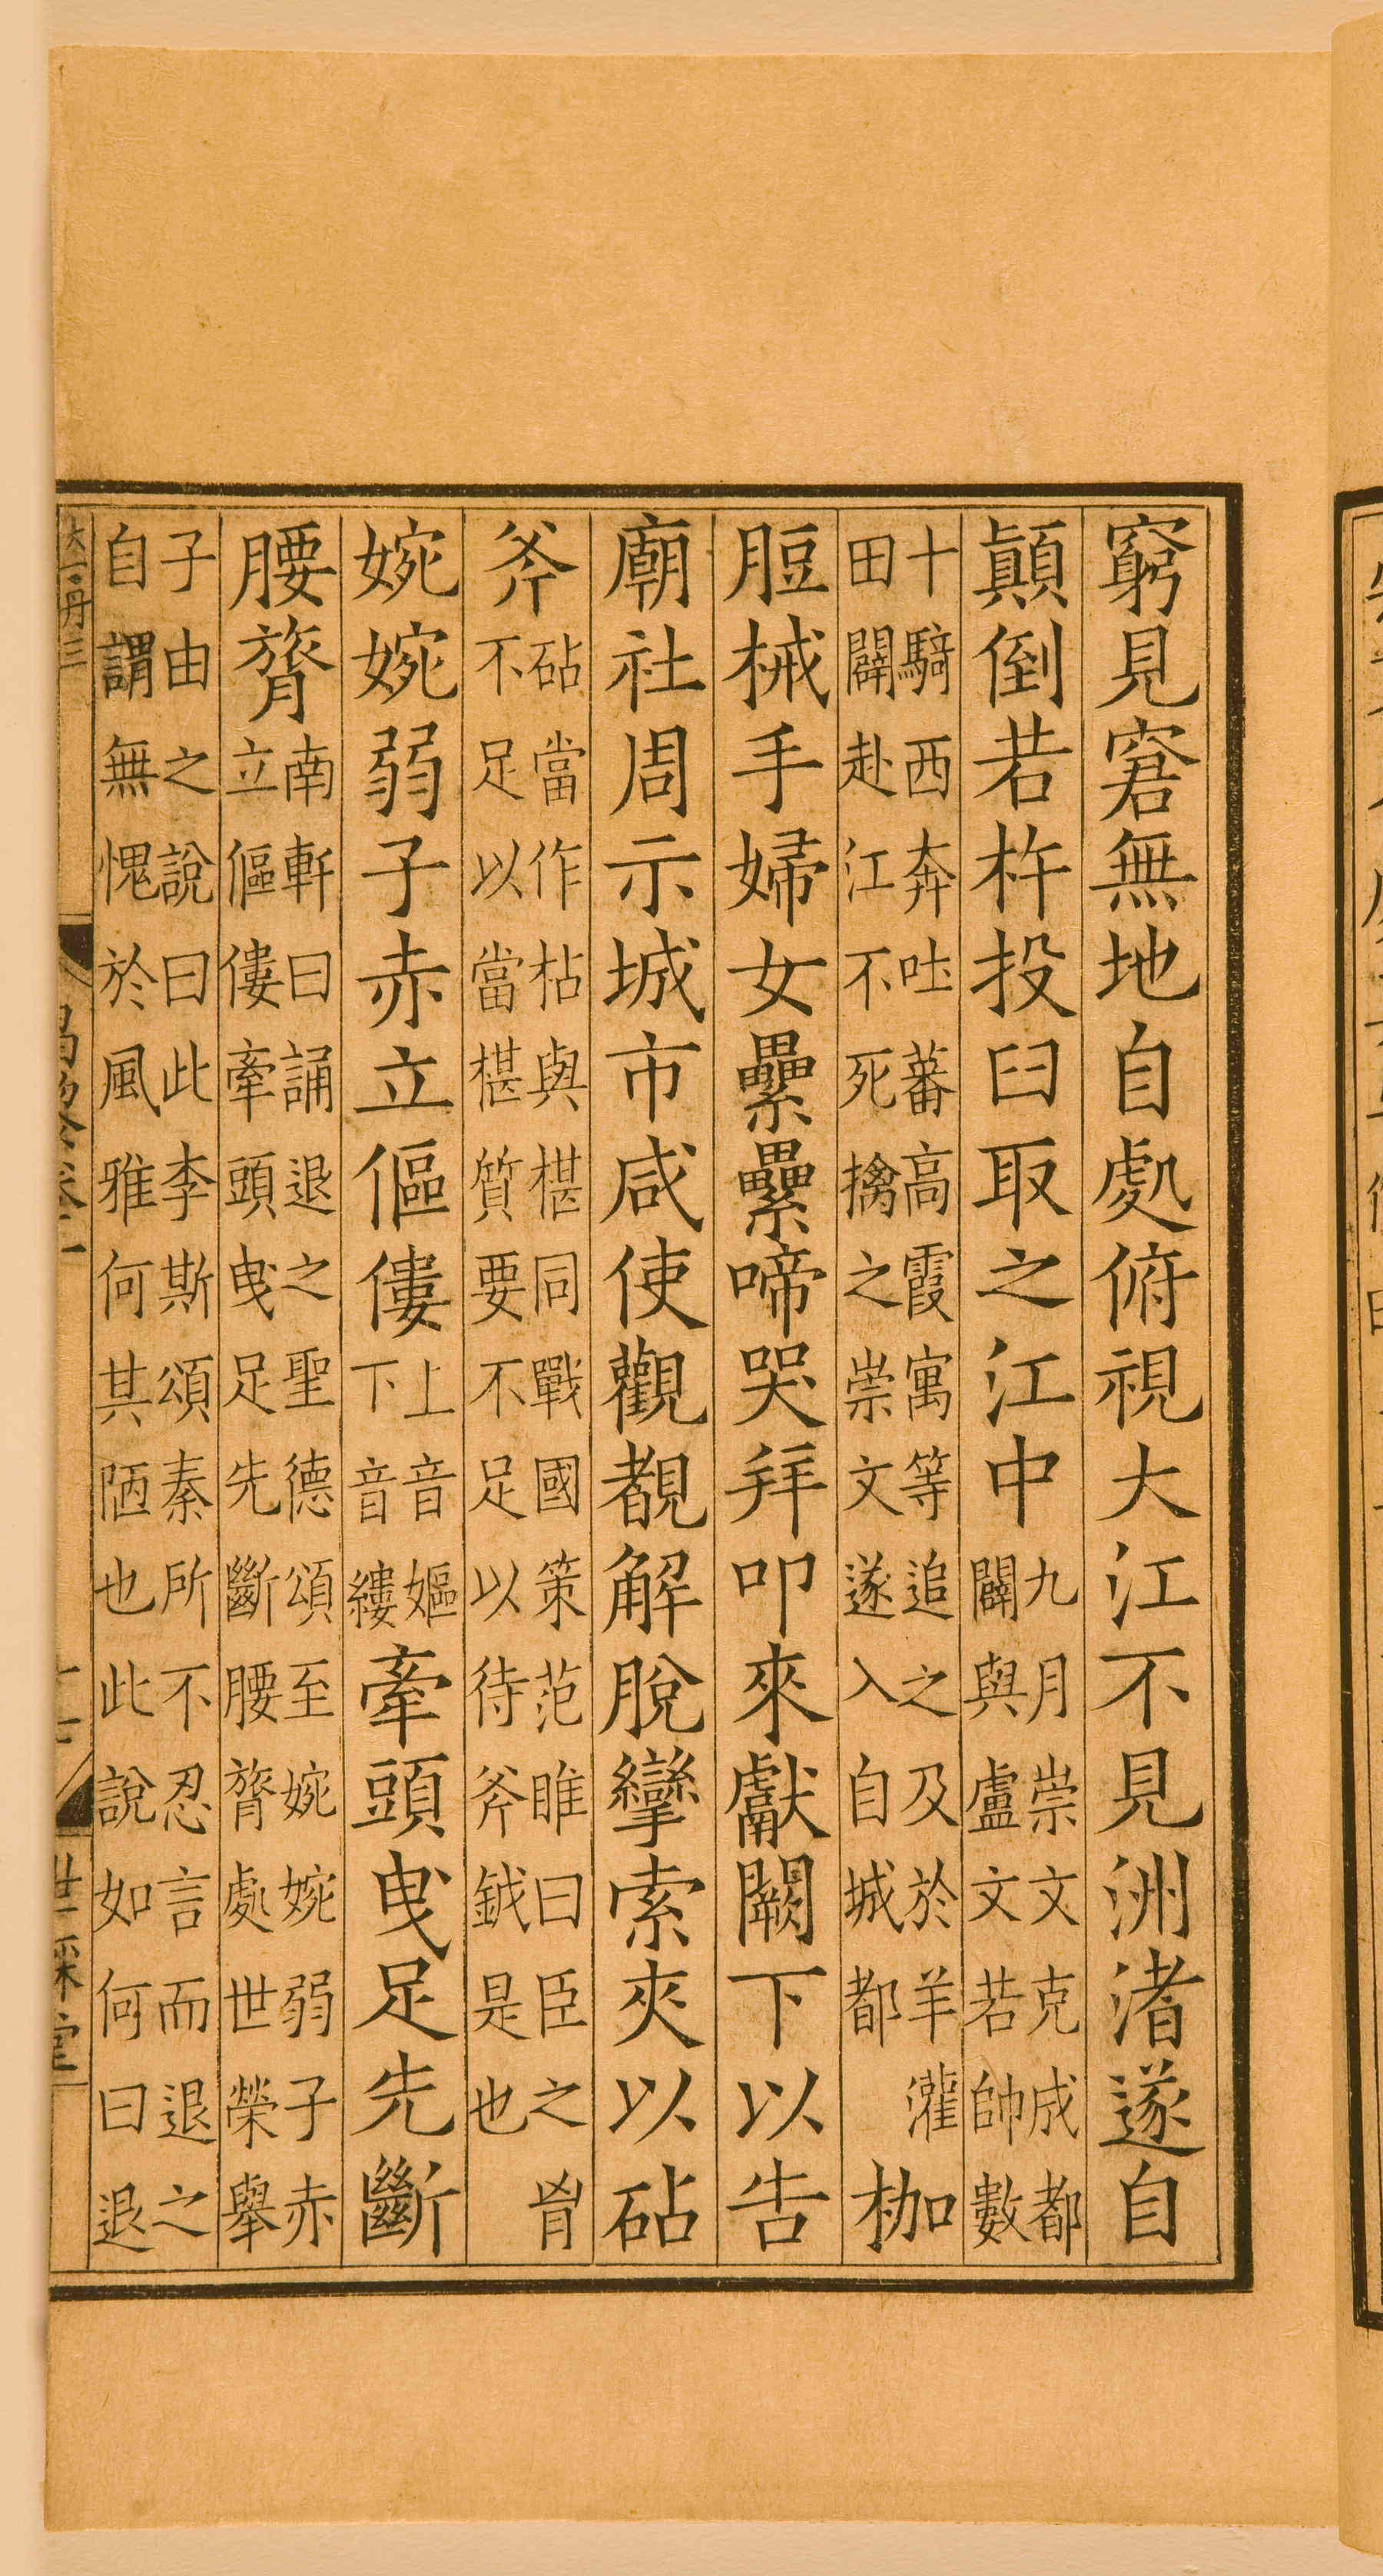 窮見窘無地自處俯視大江不見洲渚遂自
顚倒若杵投臼取之江中九月崇文克成都
闢與盧文若帥數
十騎西奔吐蕃高霞寓等追之及於羊灌
田闢赴江不死擒之崇文遂入自城都枷
脰械手婦女纍纍啼哭拜叩來獻闕下以告
廟社周示城市咸使觀覩解脫攣索夾以砧
斧砧當作枮與椹同戰國策范睢曰臣之胷
不足以當椹質要不足以待斧鉞是也
婉婉弱子赤立傴僂上音嫗
下音縷牽頭曳足先斷
腰膂南軒曰誦退之聖德頌至婉婉弱子赤
立傴僂牽頭曳足先斷腰膂處世榮舉
子由之說曰此李斯頌秦所不忍言而退之
自謂無愧於風雅何其陋也此說如何曰退
世綵堂